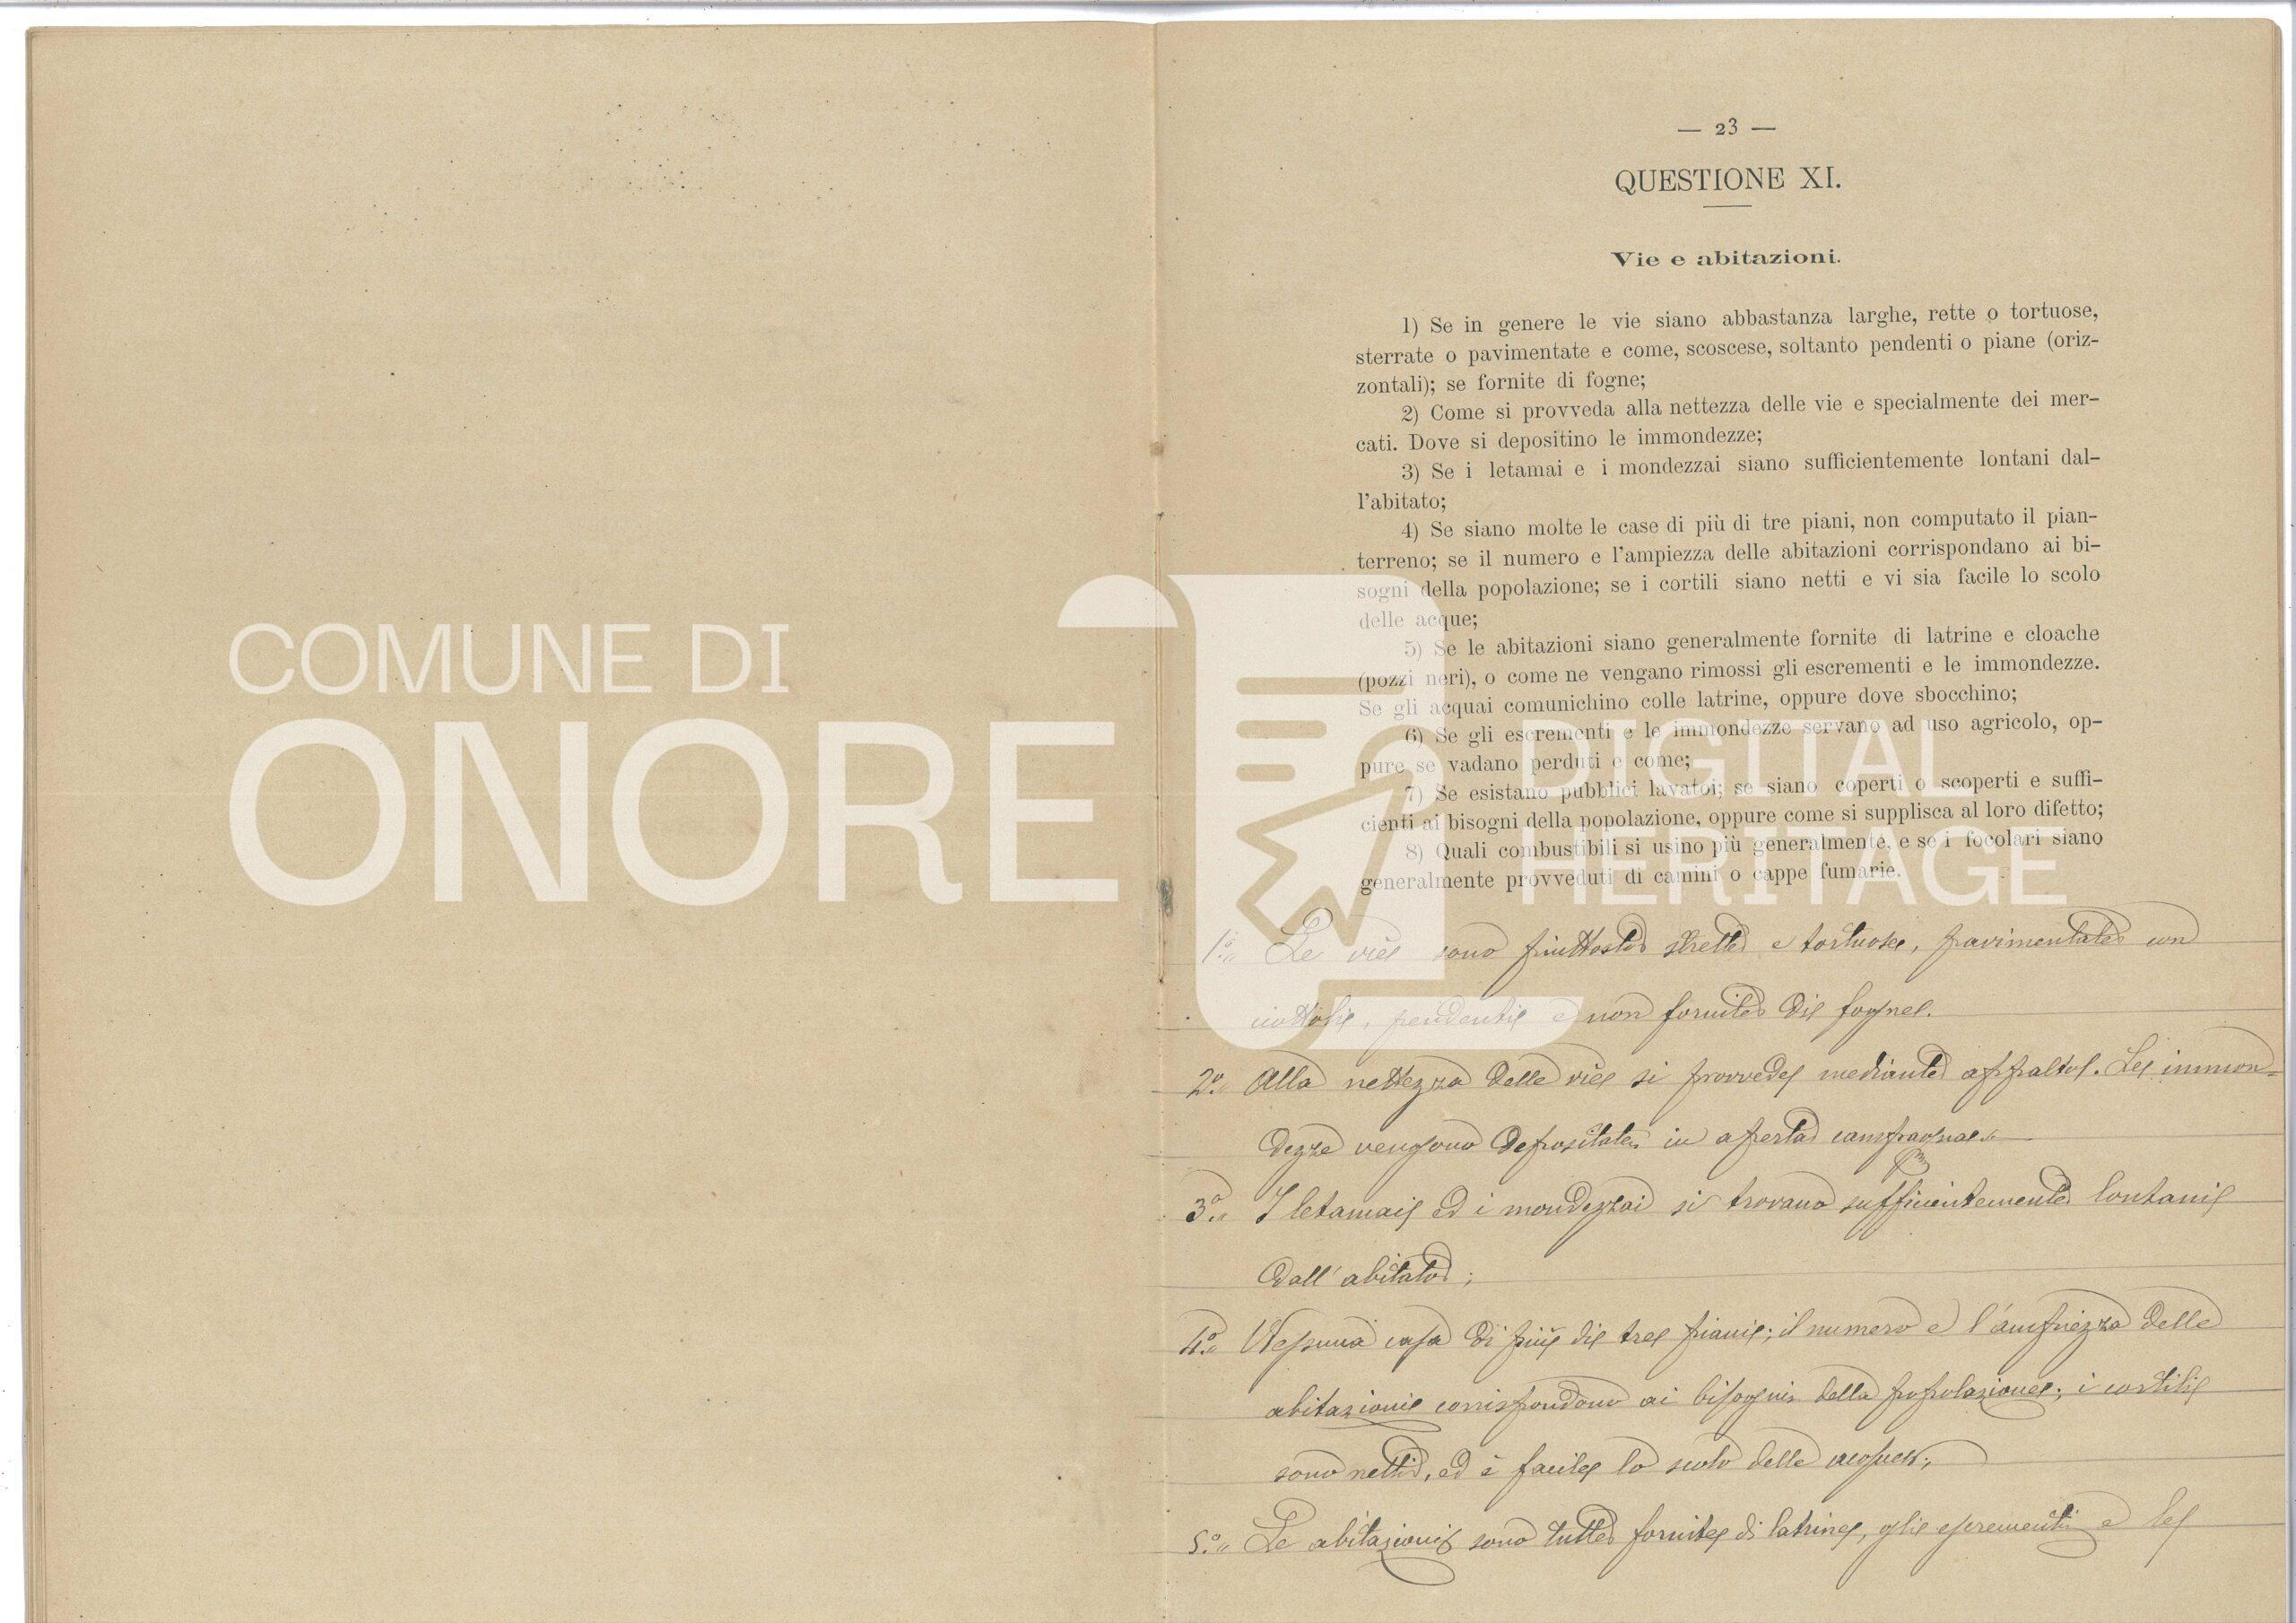 — 23 —
QUESTIONE XI.
Vie e abitazioni.
1) Se in genere le vie siano abbastanza larghe, rette o tortuose,
sterrate o pavimentate e come, scoscese, soltanto pendenti o piane (oriz-
zontali); se fornite di fogne;
2) Come si provveda alla nettezza delle vie e specialmente dei mer-
cati. Dove si depositino le immondezze;
3) Se i letamai e i mondezzai siano sufficientemente lontani dal-
l'abitato;
4) Se siano molte le case di più di tre piani, non computato il pian-
terreno; se il numero e l'ampiezza delle abitazioni corrispondano ai bi-
sogni della popolazione; se i cortili siano netti e vi sia facile lo scolo
delle acque;
5) Se le abitazioni siano generalmente fornite di latrine e cloache
(pozzi neri), o come ne vengano rimossi gli escrementi e le immondezze.
Se gli acquai comunichino colle latrine, oppure dove sbocchino;
6) Se gli escrementi e le immondezze servano ad uso agricolo, op-
pure se vadano perduti e come;
7) Se esistano pubblici lavatoi; se siano coperti o scoperti e suffi-
cienti ai bisogni della popolazione, oppure come si supplisca al loro difetto;
8) Quali combustibili si usino più generalmente, e se i focolari siano
generalmente provveduti di camini o cappe fumarie.
1.° Le vie sono piuttosto strette e tortuose, pavimentate con
ciottoli, pendenti e non fornite di fogne.
2.° Alla nettezza delle vie si provvede mediante appalto. Le immon=
dezze vengono depositate in aperta campagna.
3.° I letamai ed i mondezzai si trovano sufficientemente lontani
dall'abitato;
4.° Nessuna casa di più di tre piani; il numero e l'ampiezza delle
abitazioni corrispondono ai bisogni della popolazione; i cortili
sono netti, ed è facile lo scolo delle acque;
5.° Le abitazioni sono tutte fornite di latrine, gli escrementi e le
COMUNE DI
ONORE
DIGITAL
HERITAGE